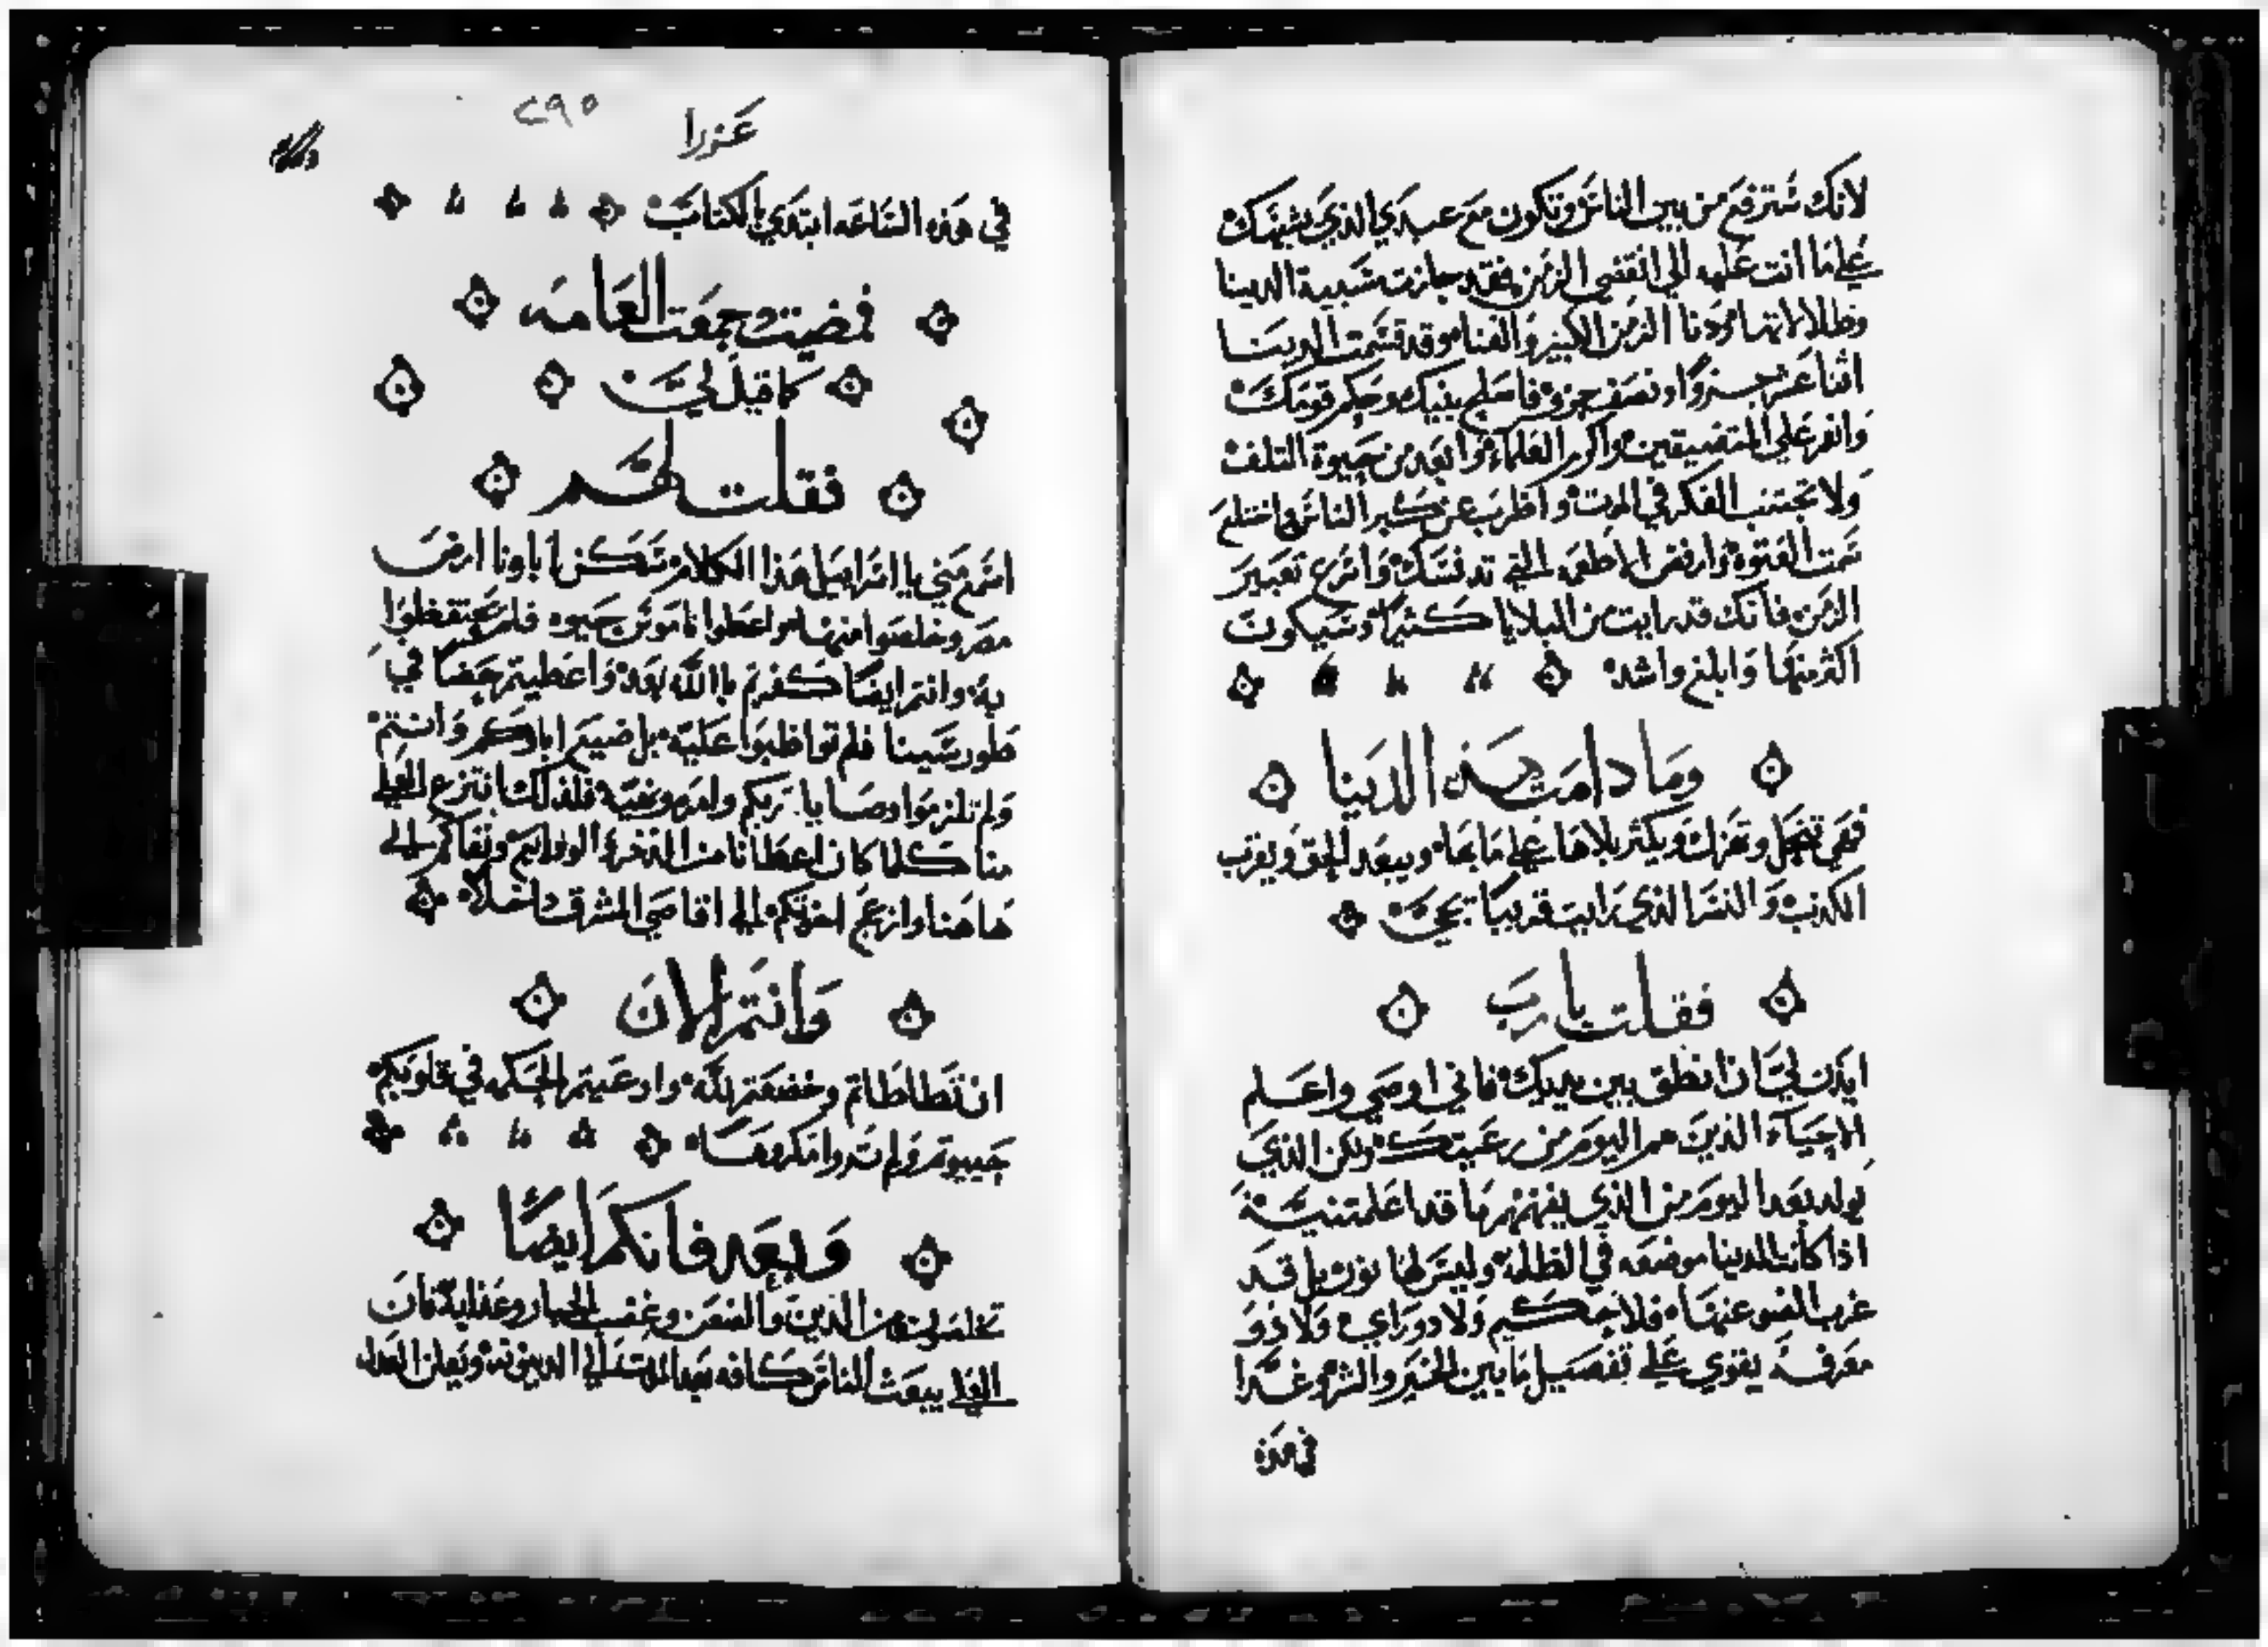 لانك ستترفع من بين الناس وتكون مع عبدي الذي يشبهك
علي ما انت عليه الي انقضي الزمن فقد جازت شبيبة الدينا
وظلالاتها ودنا الزمن الكبير والفنا وقد قسمت الدينا
اثنا عشر جزوا ونصف جزو فاصلح بيتك وحكم قومك
وانفر علي المتضيقين واكرم العلماء وابعد من حيوة التلف
ولا تجتنب الفكر في الموت واطرب عن كبر الناس واختلع
سمت الفتوة وارفض الاطعمه التي تدنسك واسرع تعبير
الزمن فانك قد رايت من البلايا كثيرا وسيكون
اكثر منها وابلغ واشد
وما دامت هذه الدينا
فهي تنحل وتهزل ويكثر بلاها علي ما بها ويبعد الحق ويقرب
الكذب والنسر الذي رايت قريبا يجي
فقلت يا رب
ايذن لي ان انطق بين يديك فاني اوصي واعلم
الاحياء الذين هم اليوم من رعيتك ولكن الذي
يولد بعد اليوم من الذي يفهمهم ما قد اعلمتنيه
اذا كانت الدنيا موضعه في الظلمة وليس لها نور بل قد
غرب الضو عنها فلا حكيم ولا دو راي ولا ذو
معرفة يقوي علي تفصيل ما بين الخير والشر وغدا
في هذه
عزرا
٢٩٥
في هذه الساعه ابتدي الكتاب
فمضيت وجمعت العامه
كما قيل لي
فقلت لهم
اسمع مني يا اسراييل هذا الكلام سكن اباونا ارض
مصر وخلصوا منها واعطوا ناموس حيوه فلم يحتفظوا
به وانتم ايضا كفرتم بالله بعد واعطيتم حضا في
طور سينا فلم تواظبوا عليه بل ضيع اباوكم وانتم
ولم تلزموا وصايا ربكم فلذلك انتزع العلي
منا كلما كان اعطانا من الذخر ونفاكم الي
هاهنا وازعج اخوتكم الي اقاصي المشرق داخلا
وانتم الان
ان تطاطاتم وخضعتم لله وادعيتم الحكمه في قلوبكم
حييتم ولم تروا مكروها
وبعد فانكم ايضا
تخلصون من الدين وغضب الجبار وعذابه فان
العلي يبعث الناس كافه بعد الموت الي الدينونه ويعلن العدل